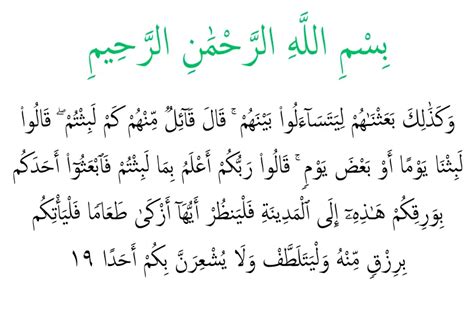 بِسْمِ اللَّهِ الرَّحْمَٰنِ الرَّحِيمِ
وَكَذَٰلِكَ بَعَثْنَـٰهُمْ لِيَتَسَآءَلُوا۟ بَيْنَهُمْ ۚ قَالَ قَآئِلٌۭ مِّنْهُمْ كَمْ لَبِثْتُمْ ۖ قَالُوا۟
لَبِثْنَا يَوْمًا أَوْ بَعْضَ يَوْمٍۢ ۚ قَالُوا۟ رَبُّكُمْ أَعْلَمُ بِمَا لَبِثْتُمْ فَٱبْعَثُوٓا۟ أَحَدَكُم
بِوَرِقِكُمْ هَـٰذِهِۦٓ إِلَى ٱلْمَدِينَةِ فَلْيَنظُرْ أَيُّهَآ أَزْكَىٰ طَعَامًۭا فَلْيَأْتِكُم
بِرِزْقٍۢ مِّنْهُ وَلْيَتَلَطَّفْ وَلَا يُشْعِرَنَّ بِكُمْ أَحَدًا ١٩